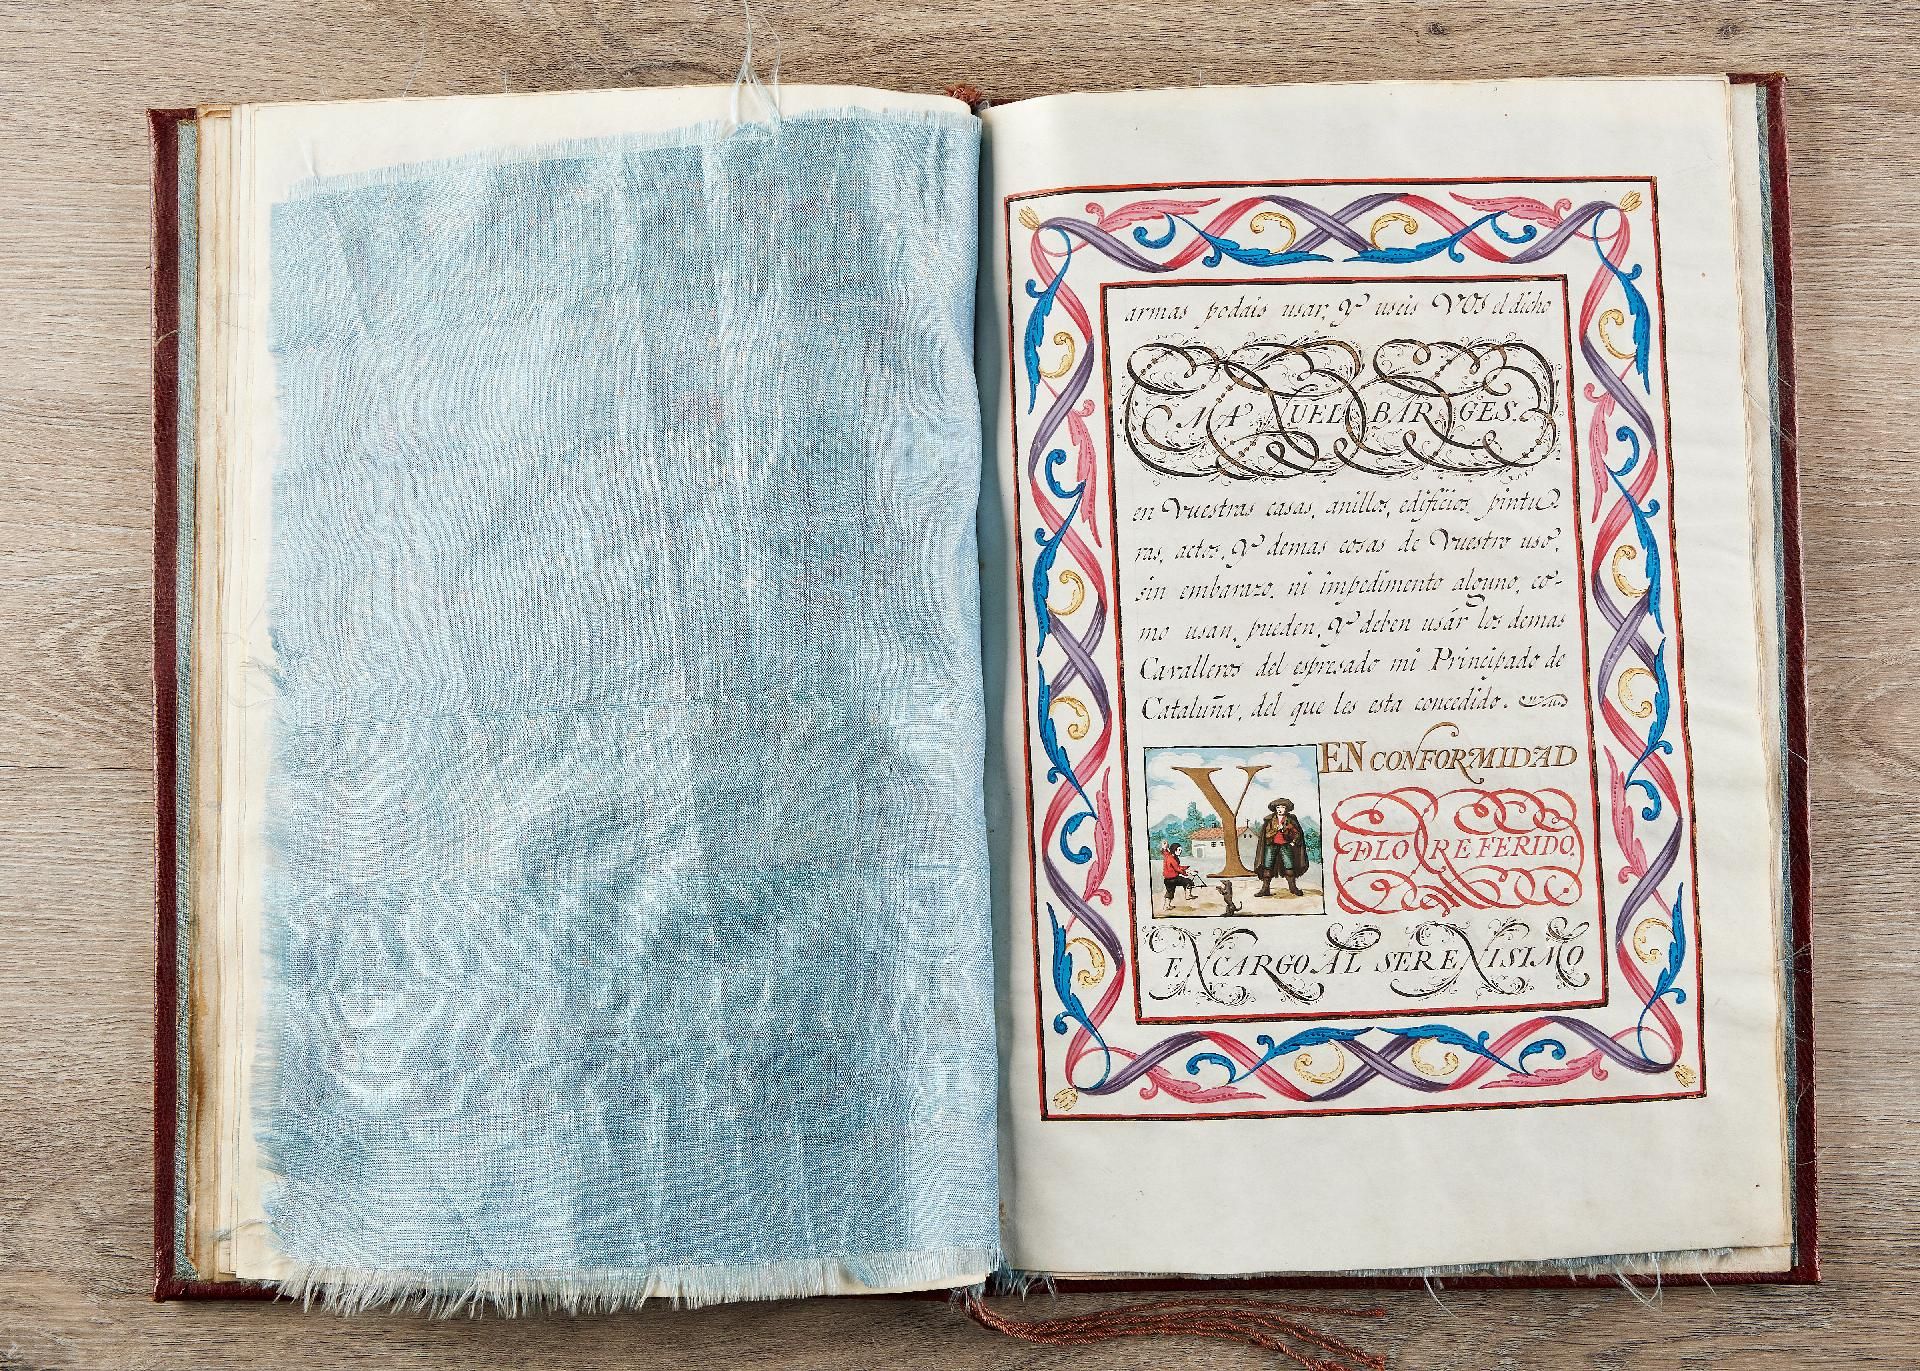 armas podais usar, Y useis VOS el dicho
MANUEL BARGES.
en Vuestras casas, anillos, edificios, pintu
ras, actos, Y demas cosas de Vuestro uso,
sin embarazo, ni impedimento alguno, co-
mo usan, pueden, Y deben usár los demas
Cavalleros del espresado mi Principado de
Cataluña, del que les esta concedido.
Y EN CONFORMIDAD
DLO REFERIDO,
ENCARGO AL SERENISIMO